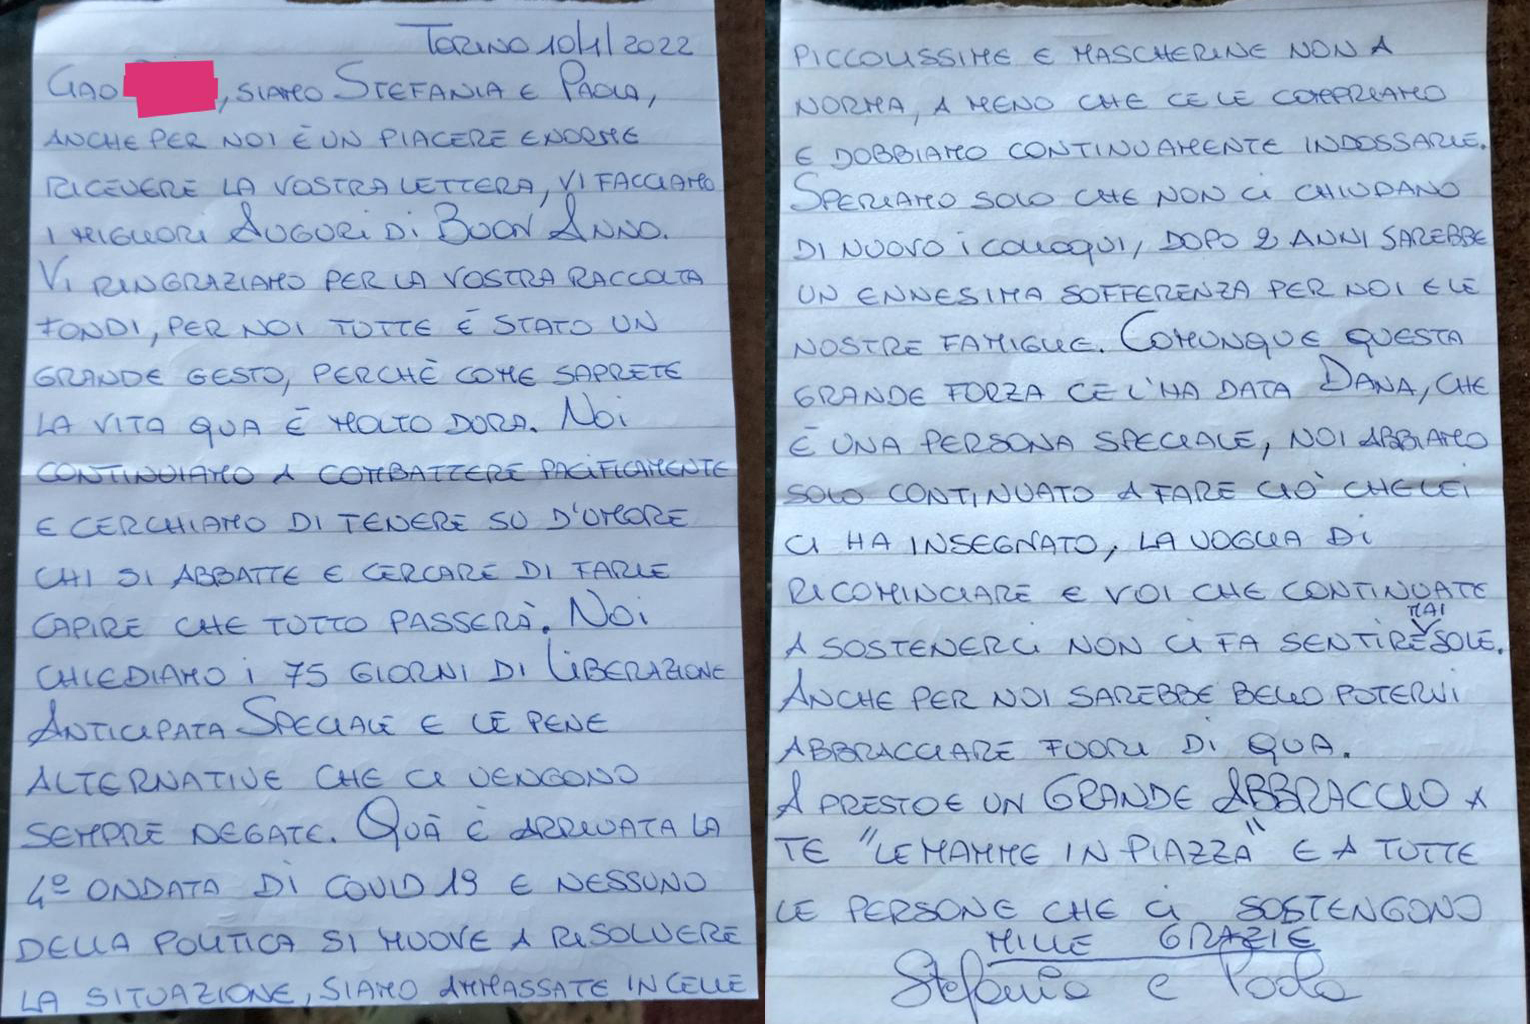 TORINO 10/1/2022
CIAO , SIAMO STEFANIA E PAOLA,
ANCHE PER NOI È UN PIACERE ENORME
RICEVERE LA VOSTRA LETTERA, VI FACCIAMO
I MIGLIORI AUGURI DI BUON ANNO.
VI RINGRAZIAMO PER LA VOSTRA RACCOLTA
FONDI, PER NOI TUTTE È STATO UN
GRANDE GESTO, PERCHÈ COME SAPRETE
LA VITA QUA È MOLTO DURA. NOI
CONTINUIAMO A COMBATTERE PACIFICAMENTE
E CERCHIAMO DI TENERE SU D'UMORE
CHI SI ABBATTE E CERCARE DI FARLE
CAPIRE CHE TUTTO PASSERÀ. NOI
CHIEDIAMO I 75 GIORNI DI LIBERAZIONE
ANTICIPATA SPECIALE E LE PENE
ALTERNATIVE CHE CI VENGONO
SEMPRE NEGATE. QUÀ È ARRIVATA LA
4º ONDATA DI COVID 19 E NESSUNO
DELLA POLITICA SI MUOVE A RISOLVERE
LA SITUAZIONE, SIAMO AMMASSATE IN CELLE
PICCOLISSIME E MASCHERINE NON A
NORMA, A MENO CHE CE LE COMPRIAMO
E DOBBIAMO CONTINUAMENTE INDOSSARLE.
SPERIAMO SOLO CHE NON CI CHIUDANO
DI NUOVO I COLLOQUI, DOPO 2 ANNI SAREBBE
UN ENNESIMA SOFFERENZA PER NOI E LE
NOSTRE FAMIGLIE. COMUNQUE QUESTA
GRANDE FORZA CE L'HA DATA DANA, CHE
È UNA PERSONA SPECIALE, NOI ABBIAMO
SOLO CONTINUATO A FARE CIÒ CHE LEI
CI HA INSEGNATO, LA VOGLIA DI
RICOMINCIARE E VOI CHE CONTINUATE
A SOSTENERCI NON CI FA SENTIRE MAI SOLE.
ANCHE PER NOI SAREBBE BELLO POTERVI
ABBRACCIARE FUORI DI QUA.
A PRESTO E UN GRANDE ABBRACCIO A
TE "LE MAMME IN PIAZZA" E A TUTTE
LE PERSONE CHE CI SOSTENGONO
MILLE GRAZIE
Stefania e Paola